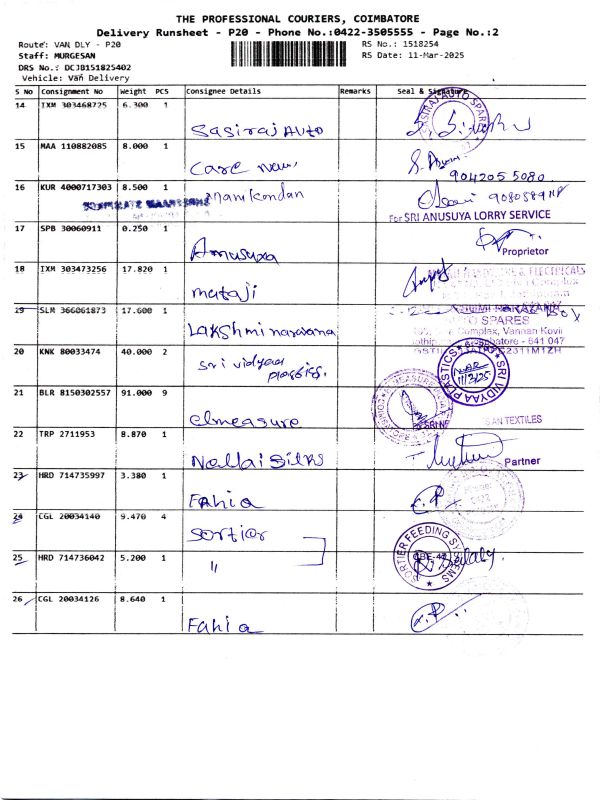 THE PROFESSIONAL COURIERS, COIMBATORE
Delivery Runsheet - P20 - Phone No.:0422-3505555 - Page No.:2
Route: VAN DLY - P20
RS No.: 1518254
Staff: MURGESAN
RS Date: 11-Mar-2025
DRS No.: DCJ0151825402
Vehicle: Van Delivery
S No Consignment No Weight PCS Consignee Details Remarks Seal & Signature
14 IXM 303468725 6.300 1
SASIRAJ AUTO SPARES
Sasiraj Auto
15 MAA 110882085 8.000 1
care
9042055080
16 KUR 4000717303 8.500 1
Manikandan
For SRI ANUSUYA LORRY SERVICE
17 SPB 30060911 0.250 1
Anusuya
Proprietor
18 IXM 303473256 17.820 1
& ELECTRICALS
Complex
mataji
19 SLM 366061873 17.600 1
O SPARES
Complex, Vannan Kovil
Coimbatore - 641 047
Lakshmi narayana
20 KNK 80033474 40.000 2
Sri vidyaa
plastics.
SRI VIDYAA PLASTICS
11/3/25
21 BLR 8150302557 91.000 9
elmeasure
TEXTILES
22 TRP 2711953 8.870 1
Nallai Silks
Partner
23 HRD 714735997 3.380 1
Fahia
24 CGL 20034140 9.470 4
Sortier
SORTIER FEEDING SYSTEMS
25 HRD 714736042 5.200 1
"
26 CGL 20034126 8.640 1
Fahia